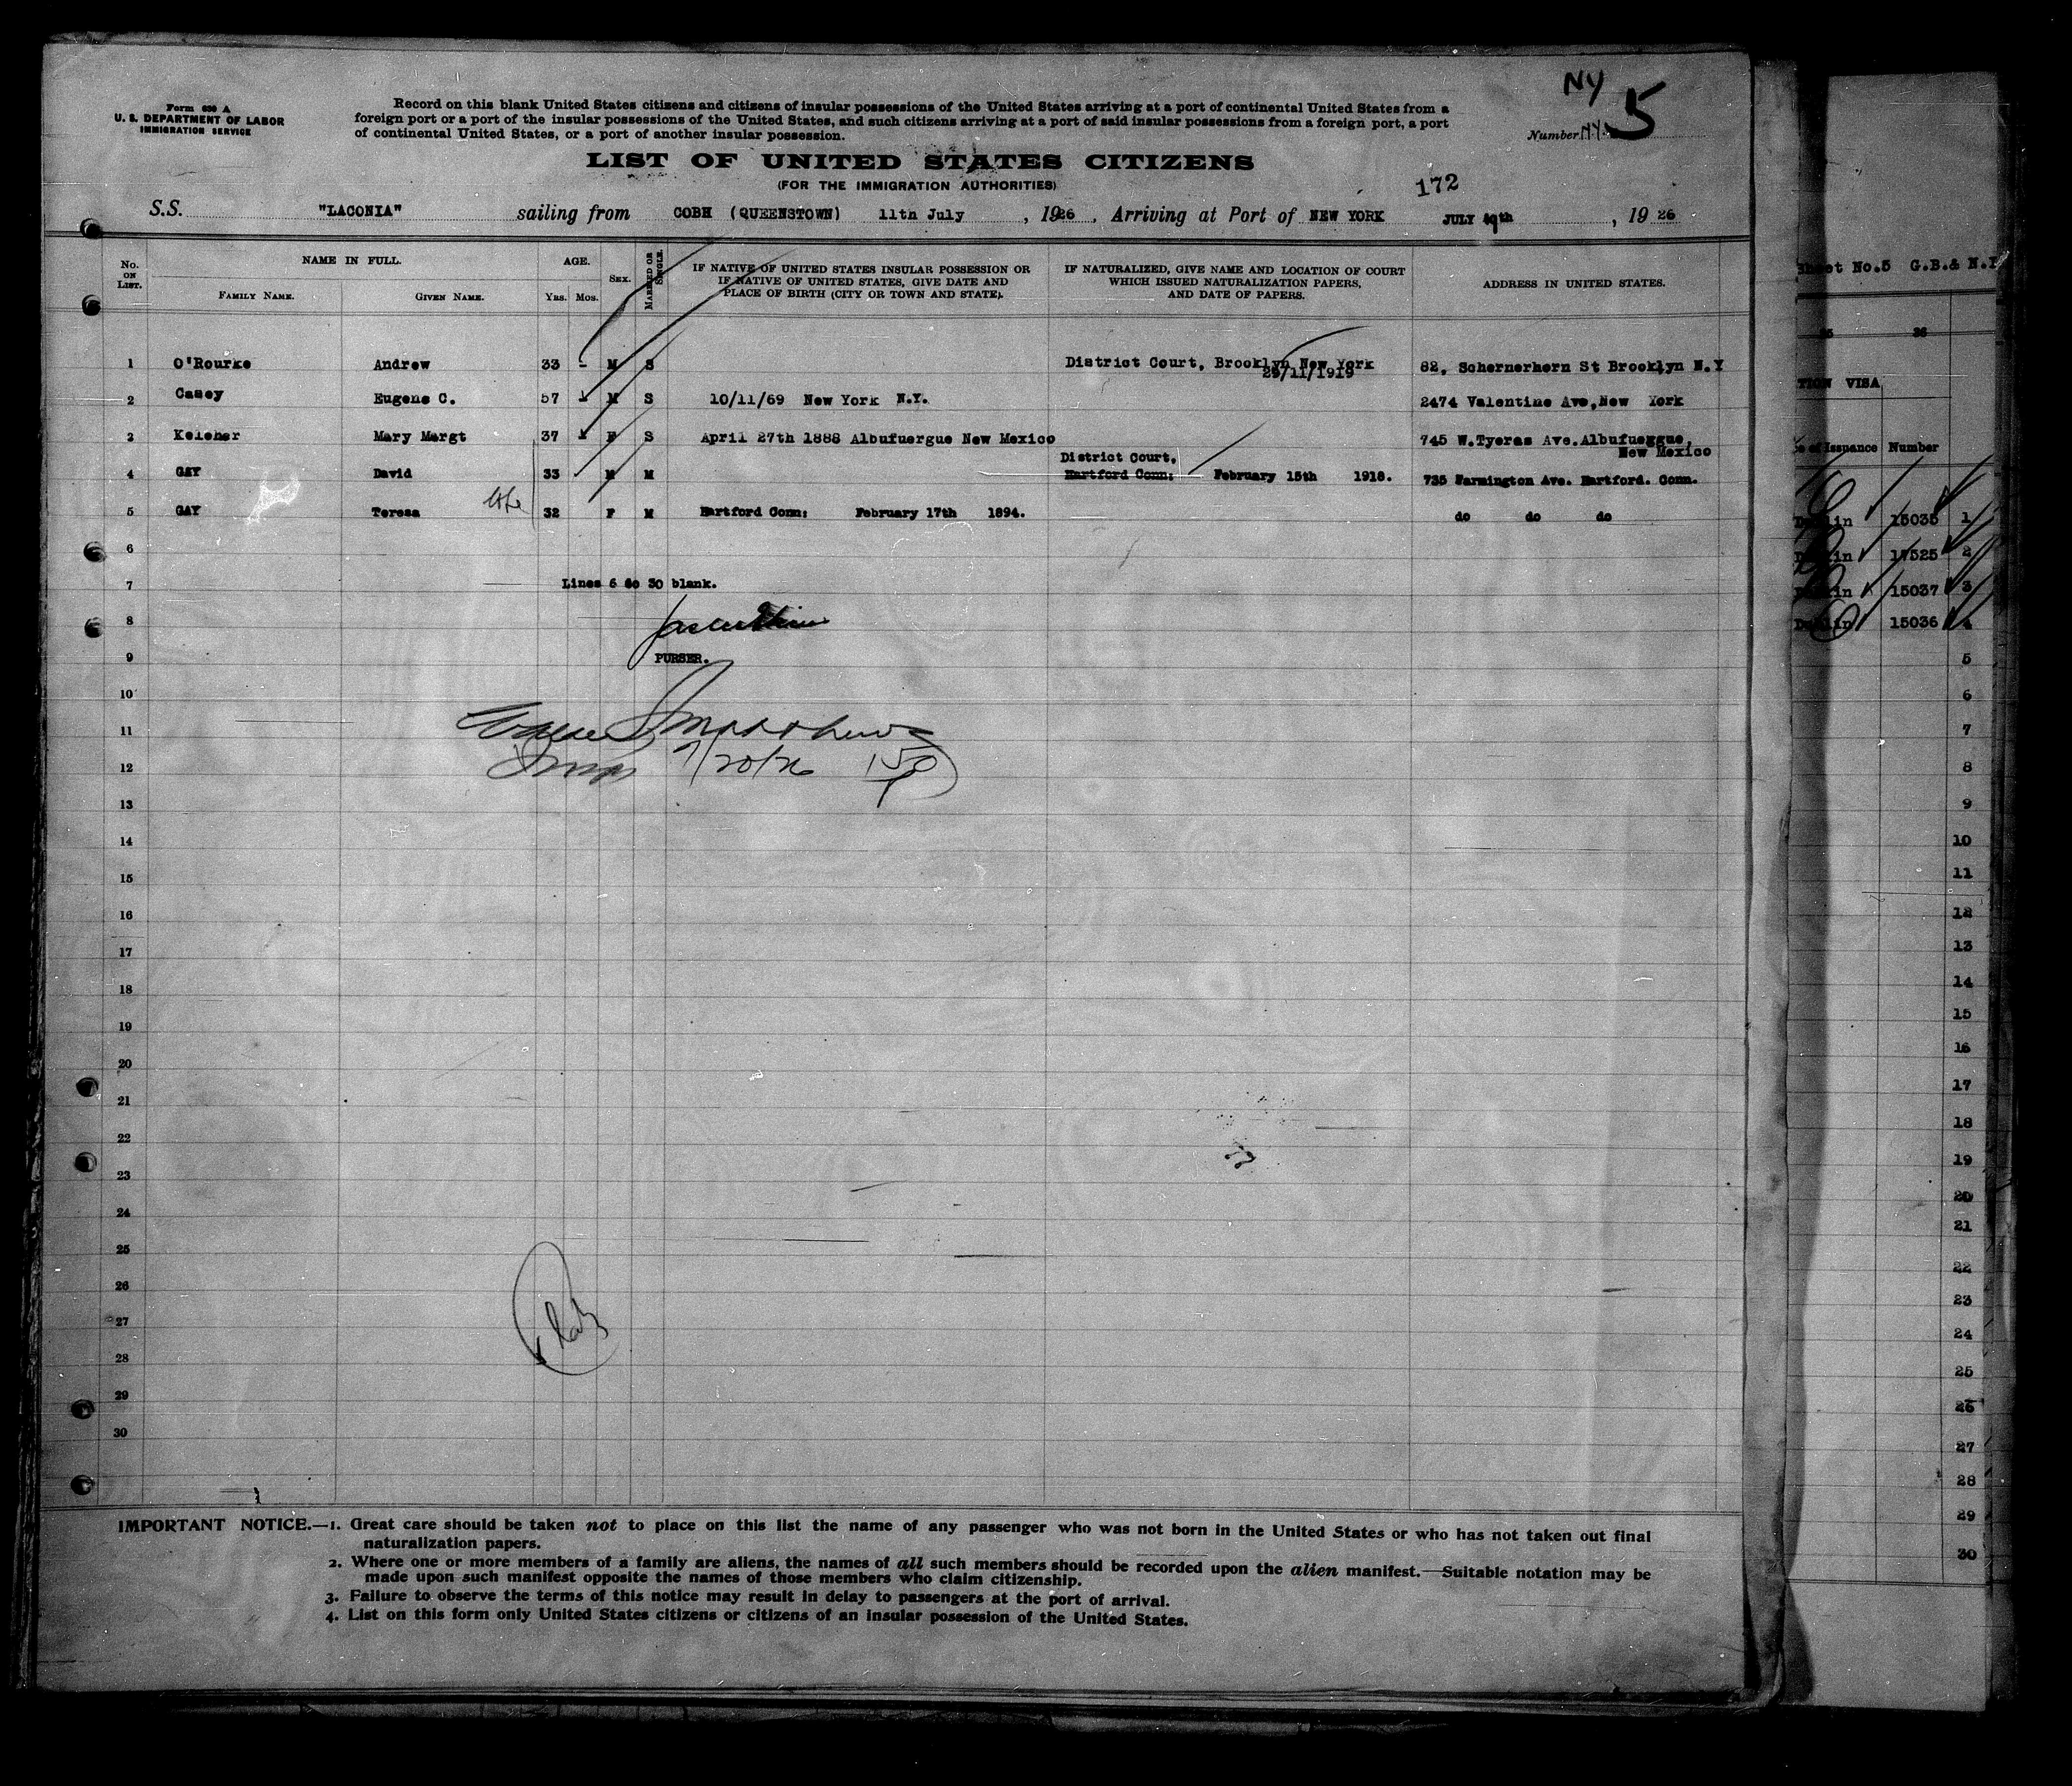 NY
Form 630 A
U. S. DEPARTMENT OF LABOR
IMMIGRATION SERVICE
Record on this blank United States citizens and citizens of insular possessions of the United States arriving at a port of continental United States from a
foreign port or a port of the insular possessions of the United States, and such citizens arriving at a port of said insular possessions from a foreign port, a port
of continental United States, or a port of another insular possession.
Number N.Y. 5
LIST OF UNITED STATES CITIZENS
(FOR THE IMMIGRATION AUTHORITIES)
172
S.S. "LACONIA" sailing from COBH (QUEENSTOWN) 11th July, 1926, Arriving at Port of NEW YORK JULY 19th, 1926
No. ON LIST. NAME IN FULL. FAMILY NAME. GIVEN NAME. AGE. Yrs. Mos. SEX. MARRIED OR SINGLE. IF NATIVE OF UNITED STATES INSULAR POSSESSION OR IF NATIVE OF UNITED STATES, GIVE DATE AND PLACE OF BIRTH (CITY OR TOWN AND STATE). IF NATURALIZED, GIVE NAME AND LOCATION OF COURT WHICH ISSUED NATURALIZATION PAPERS, AND DATE OF PAPERS. ADDRESS IN UNITED STATES.
1 O'Rourke Andrew 33 - M S District Court, Brooklyn New York 82, Schernerhorn St Brooklyn N.Y
29/11/1919
2 Casey Eugene C. 57 - M S 10/11/69 New York N.Y. 2474 Valentine Ave, New York
3 Keleher Mary Margt 37 - F S April 27th 1888 Albufuergue New Mexico 745 W.Tyeras Ave. Albufuergue,
New Mexico
District Court,
4 GAY David 33 M M Hartford Conn: February 15th 1918. 735 Farmington Ave. Hartford. Conn.
5 GAY Teresa 32 F M Hartford Conn: February 17th 1894. do do do
6
7 Lines 6 to 30 blank.
8
9 PURSER.
10
11
12 7/20/26
13
14
15
16
17
18
19
20
21
22
23
24
25
26
27
28
29
30
IMPORTANT NOTICE.—1. Great care should be taken not to place on this list the name of any passenger who was not born in the United States or who has not taken out final
naturalization papers.
2. Where one or more members of a family are aliens, the names of all such members should be recorded upon the alien manifest.—Suitable notation may be
made upon such manifest opposite the names of those members who claim citizenship.
3. Failure to observe the terms of this notice may result in delay to passengers at the port of arrival.
4. List on this form only United States citizens or citizens of an insular possession of the United States.
Sheet No.5 G.B.& N.I
36
VISA
of Issuance Number
Dublin 15035 1
Dublin 17525 2
Dublin 15037 3
Dublin 15036 4
5
6
7
8
9
10
11
12
13
14
15
16
17
18
19
20
21
22
23
24
25
26
27
28
29
30